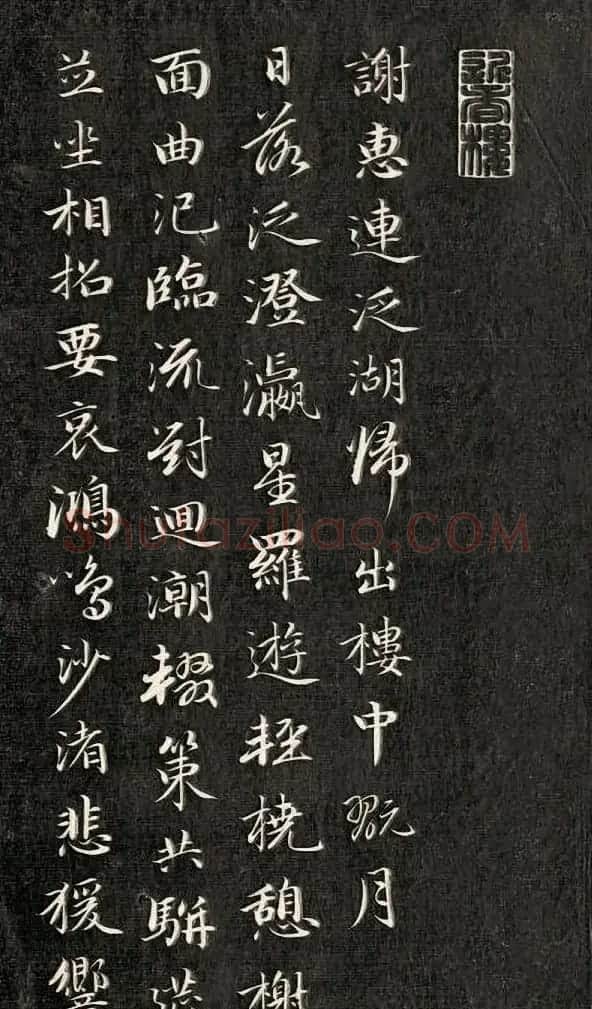 謝惠連泛湖歸出樓中翫月
日落泛澄瀛星羅遊輕橈憩榭
面曲汜臨流對迴潮輟策共駢筵
並坐相招要哀鴻鳴沙渚悲猨響
Shufaziliao.COM